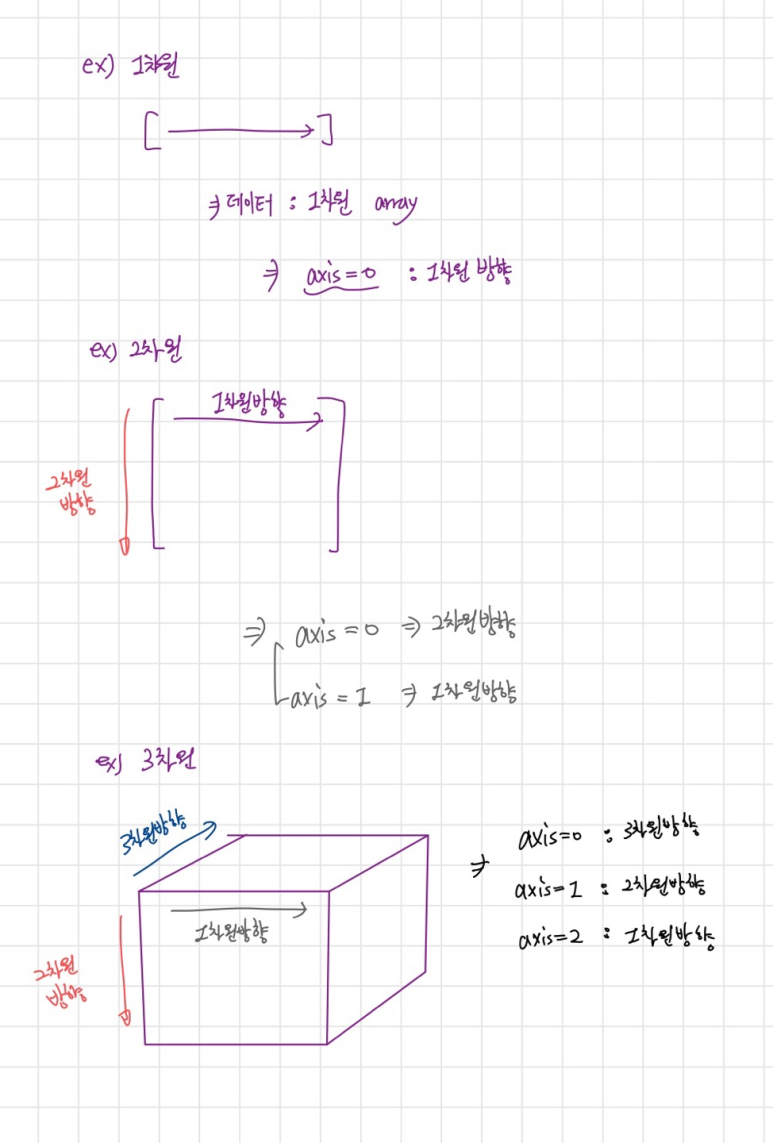 ex) 1차원
[ → ]
⇒ 데이터 : 1차원 array
⇒ axis=0 : 1차원 방향
ex) 2차원
1차원방향
2차원
방향
⇒ axis=0 ⇒ 2차원방향
axis=1 ⇒ 1차원방향
ex) 3차원
3차원방향
1차원방향
2차원
방향
⇒ axis=0 : 3차원방향
axis=1 : 2차원방향
axis=2 : 1차원방향